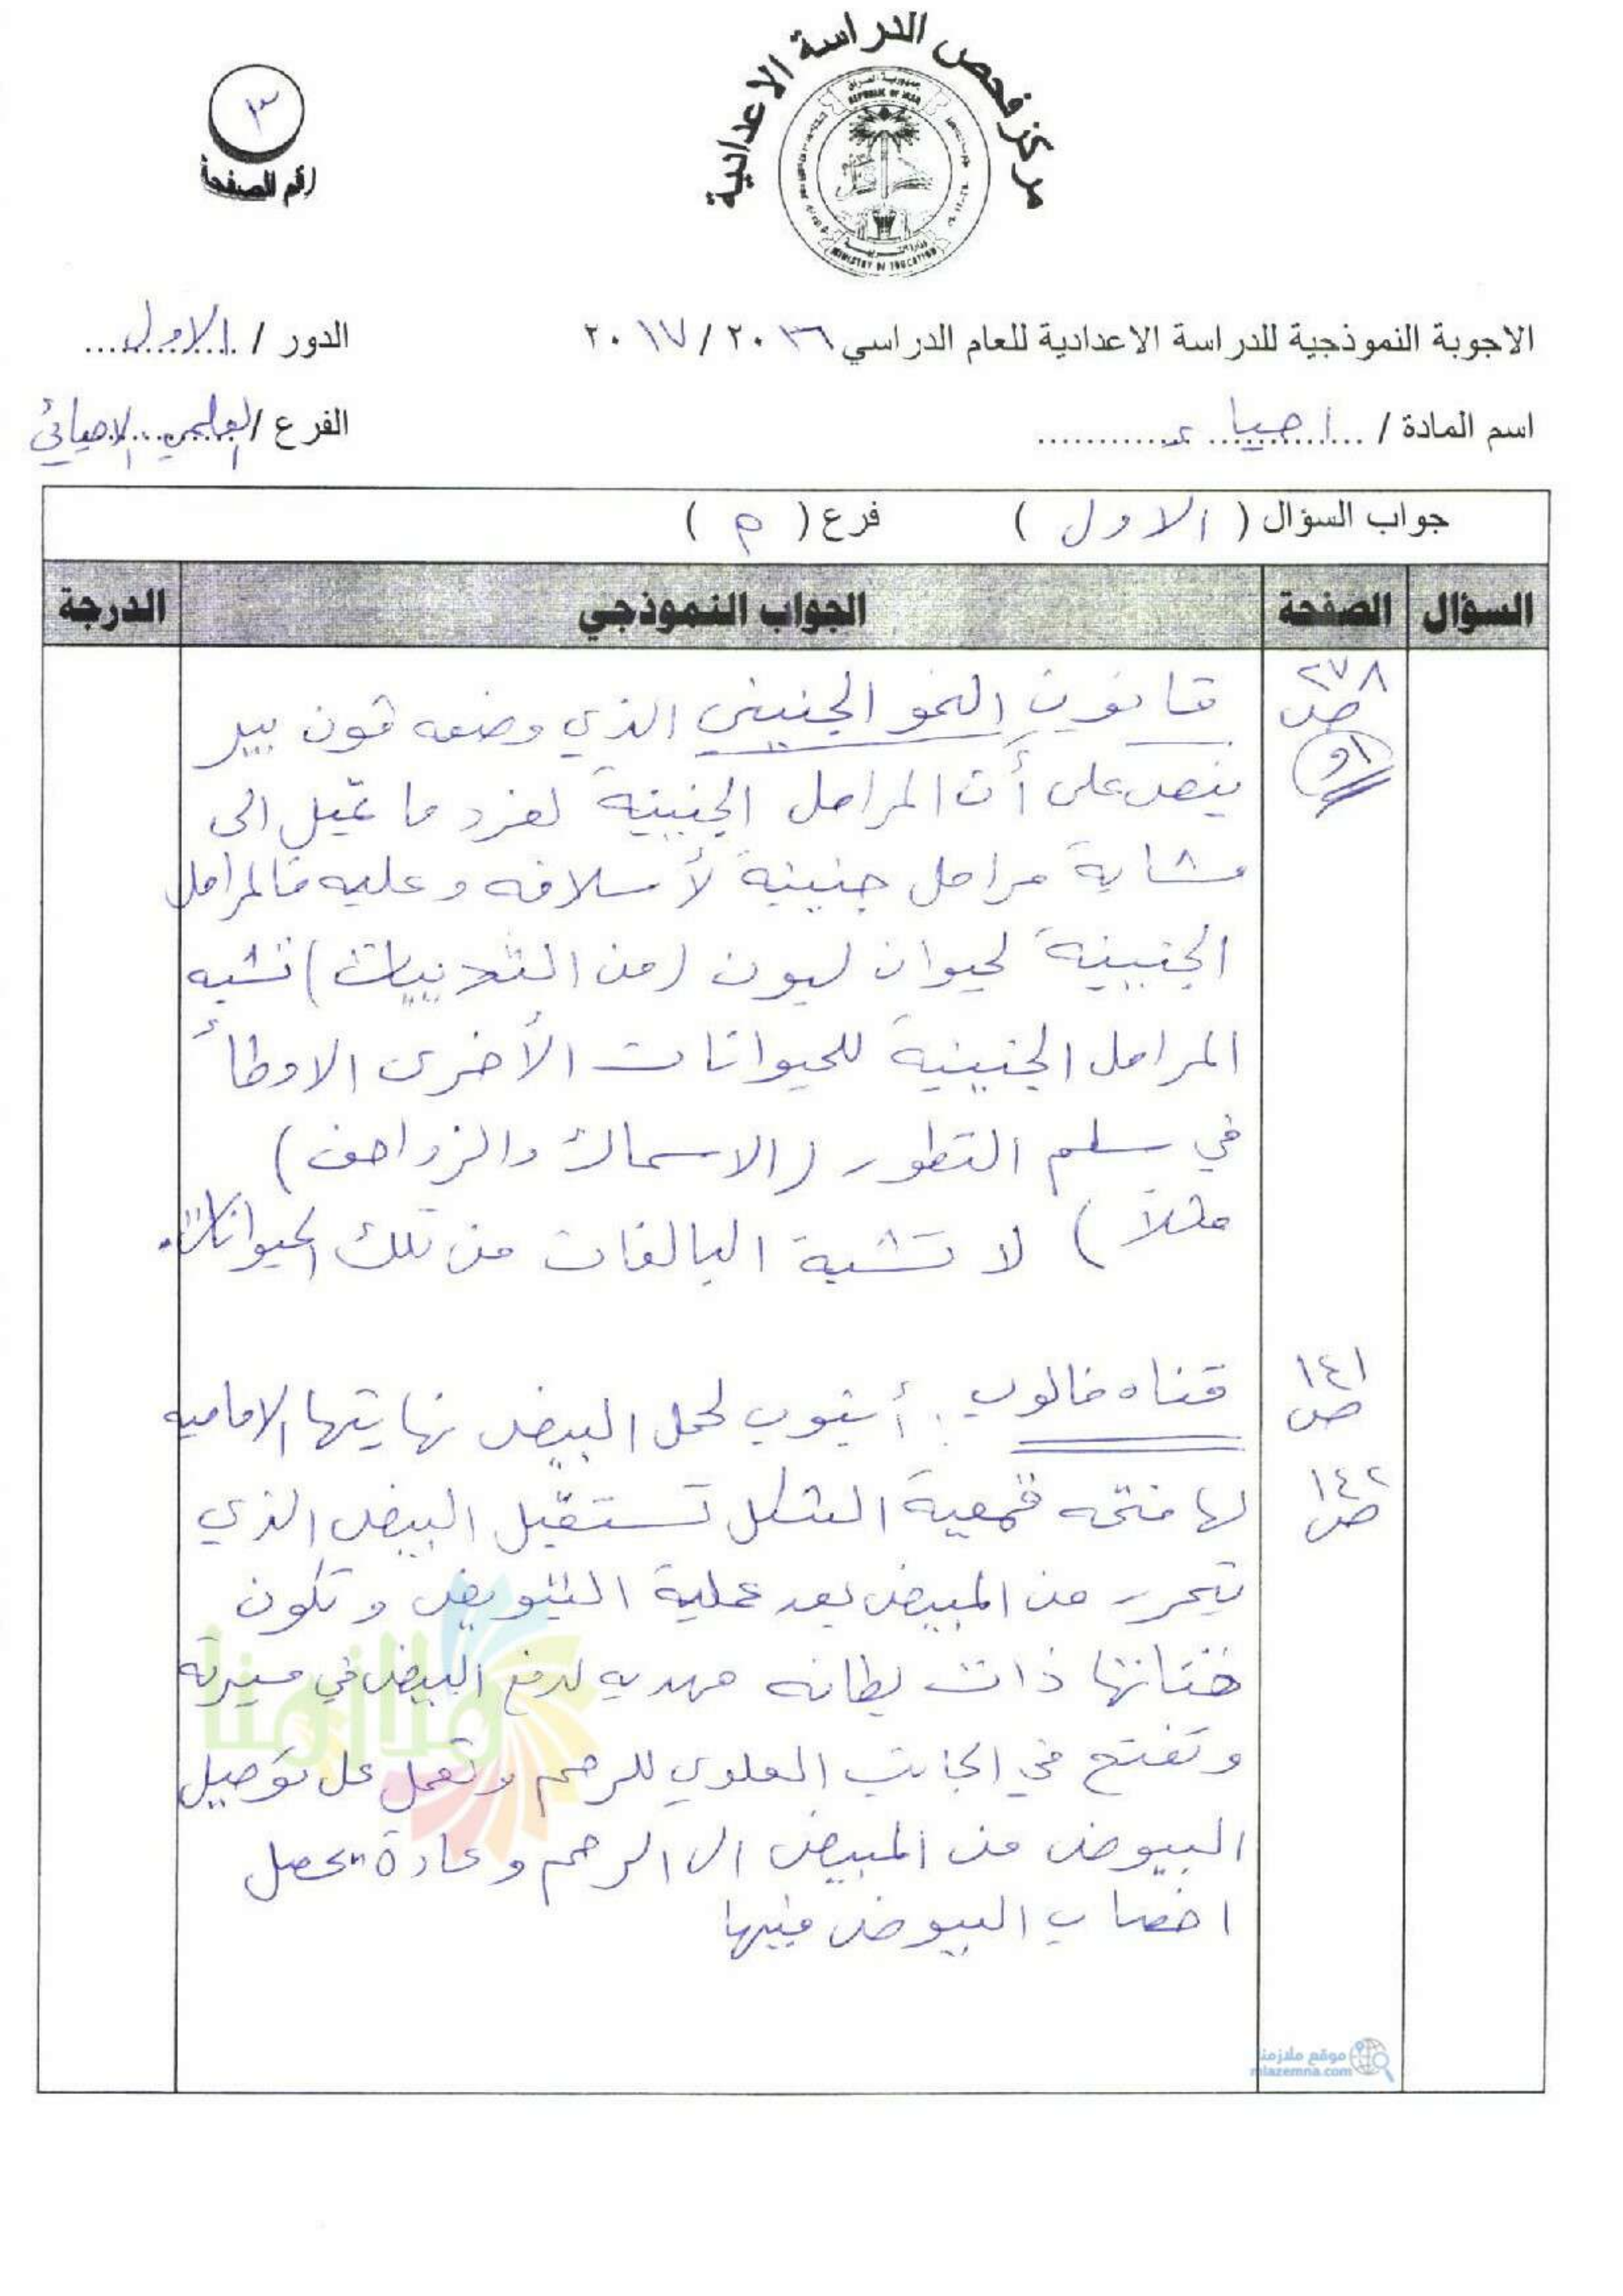 مركز فحص الدراسة الاعدادية
جمهورية العراق
REPUBLIC OF IRAQ
وزارة التربية
MINISTRY OF EDUCATION
٣
رقم الصفحة
الاجوبة النموذجية للدراسة الاعدادية للعام الدراسي ٢٠١٦ / ٢٠١٧
الدور / الاول
اسم المادة / احياء
الفرع / العلمي الاحيائي
جواب السؤال ( الاول ) فرع ( م )
السؤال الصفحة الجواب النموذجي الدرجة
٢٧٨
ص
قانون النمو الجنيني الذي وضعه فون بير
ينص على أن المراحل الجنينية لفرد ما تميل الى
مشابهة مراحل جنينية لأسلافه وعليه فالمراحل
الجنينية لحيوان لبون (من الثدييات) تشبه
المراحل الجنينية للحيوانات الأخرى الاوطأ
في سلم التطور (الاسماك والزواحف)
مثلاً ) لا تشبة البالغات من تلك الحيوانات.
١٤١
ص
قناه فالوب : أنبوب لحمل البيض نهايتها الاماميه
١٤٢
ص
لها فتحه قمعية الشكل تستقبل البيض الذي
يتحرر من المبيض بعد عملية التبويض وتكون
قناتها ذات بطانه مهدبه لدفع البيض في مسيرته
وتفتح في الجانب العلوي للرحم وتعمل على توصيل
البيوض من المبيض الى الرحم وعادة يحصل
اخصاب البيوض فيها
ملازمنا
موقع ملازمنا
mlazemna.com